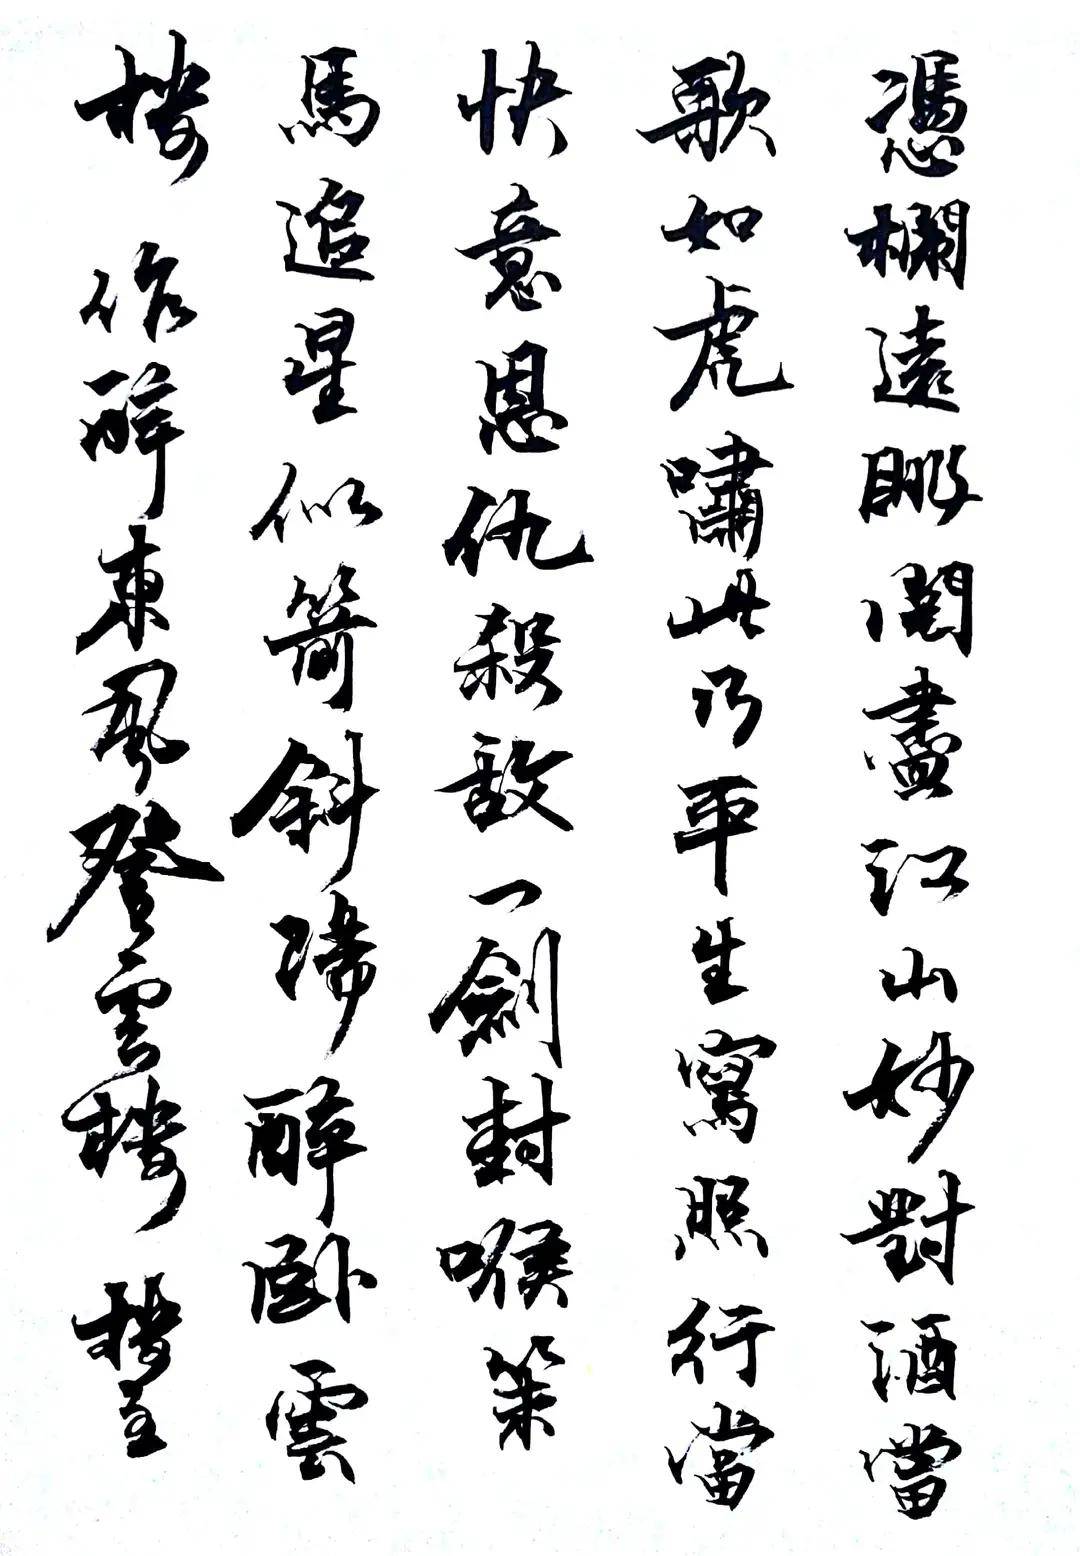 憑欄遠眺閱盡江山妙對酒當
歌如虎嘯此乃平生寫照行當
快意恩仇殺敵一劍封喉策
馬追星似箭斜陽醉卧雲
樓 作醉東風登雲樓 樓主